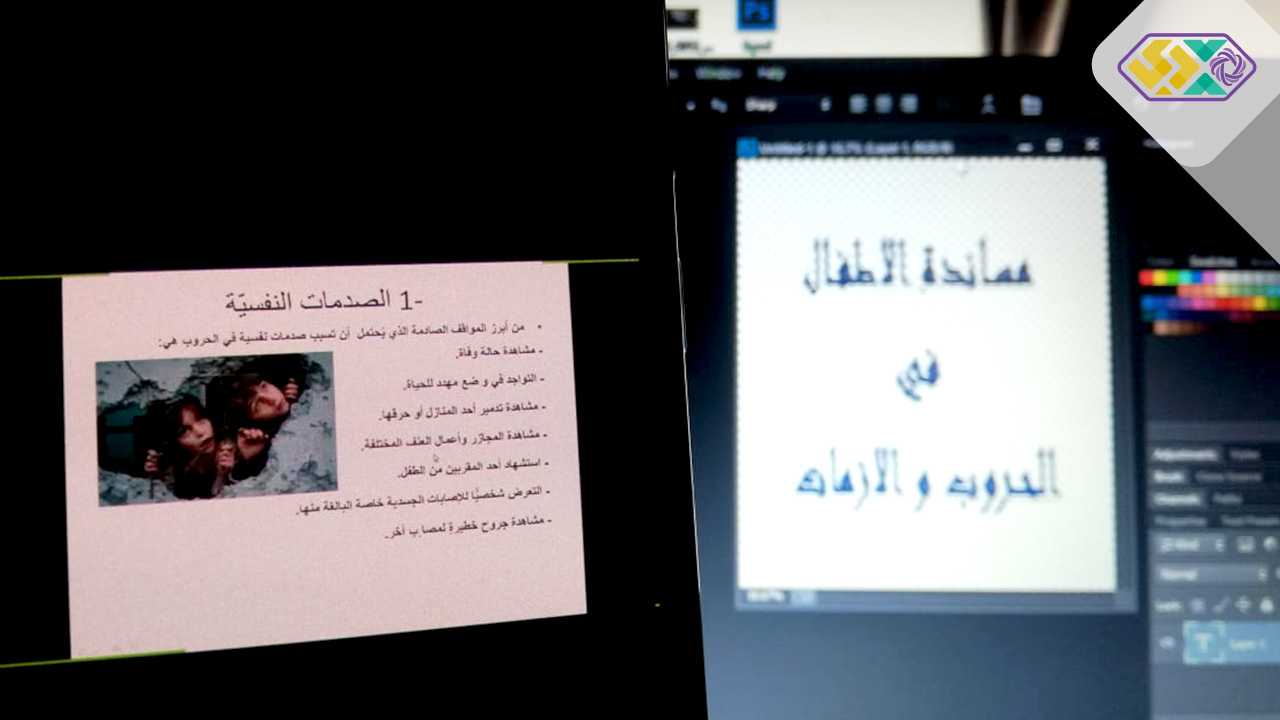 1- الصدمات النفسيّة
• من أبرز المواقف الصادمة الذي يُحتمل أن تسبب صدمات نفسية في الحروب هي:
- مشاهدة حالة وفاة.
- التواجد في وضع مهدد للحياة.
- مشاهدة تدمير أحد المنازل أو حرقها.
- مشاهدة المجازر وأعمال العنف المختلفة.
- استشهاد أحد المقربين من الطفل.
- التعرض شخصيًا للإصابات الجسدية خاصة البالغة منها.
- مشاهدة جروح خطيرة لمصاب آخر.
Ps
Window Help
Sharp
مساندة الاطفال
في
الحروب و الازمات
Adjustments Styles
Brush Clone Source
Channels Paths
Normal
Layer 1